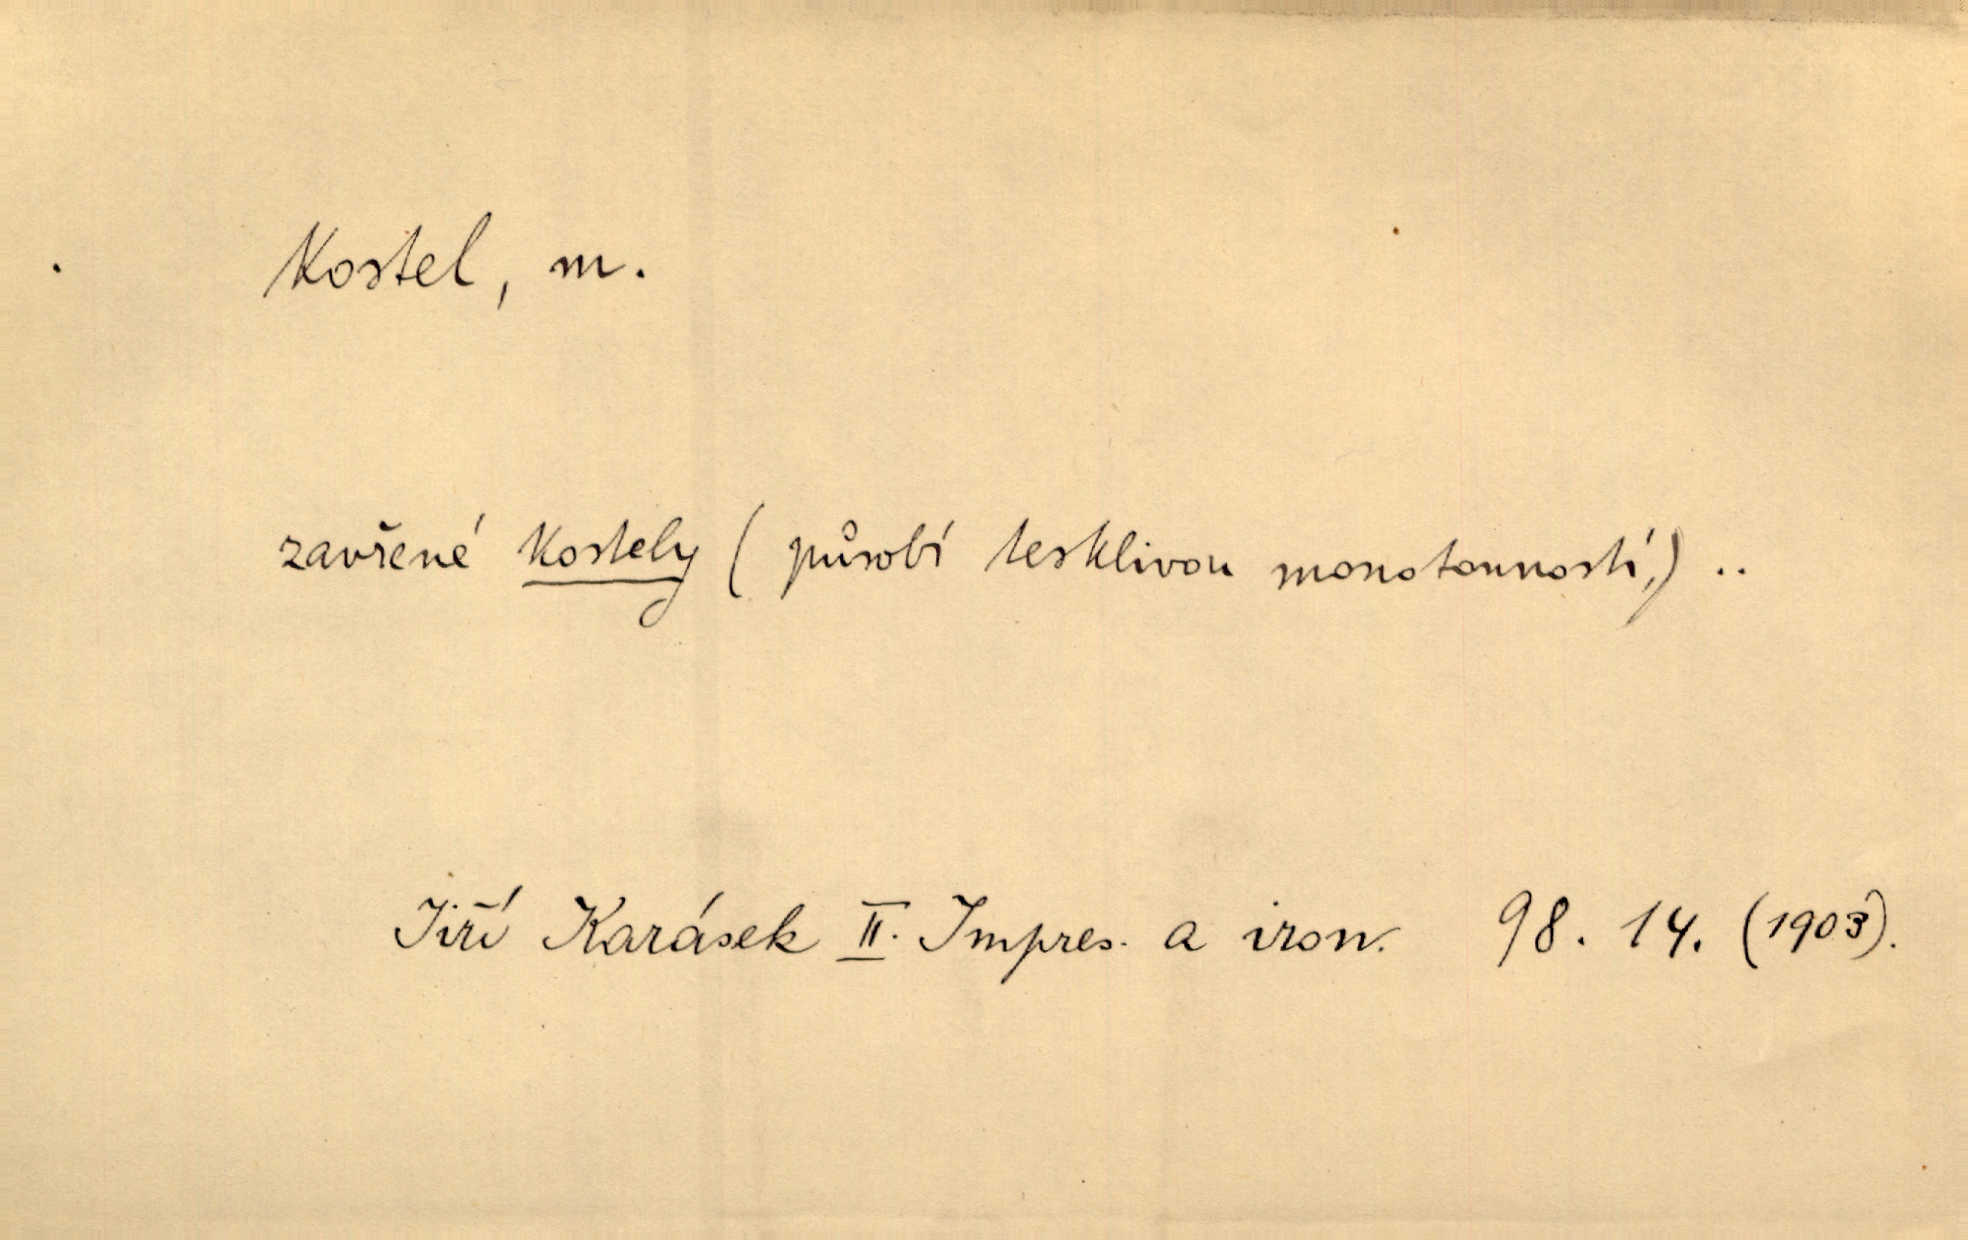 Kostel, m.
zavřené kostely (působí tesklivou monotonností,) ..
Jiří Karásek II. Impres. a iron. 98. 14. (1903).